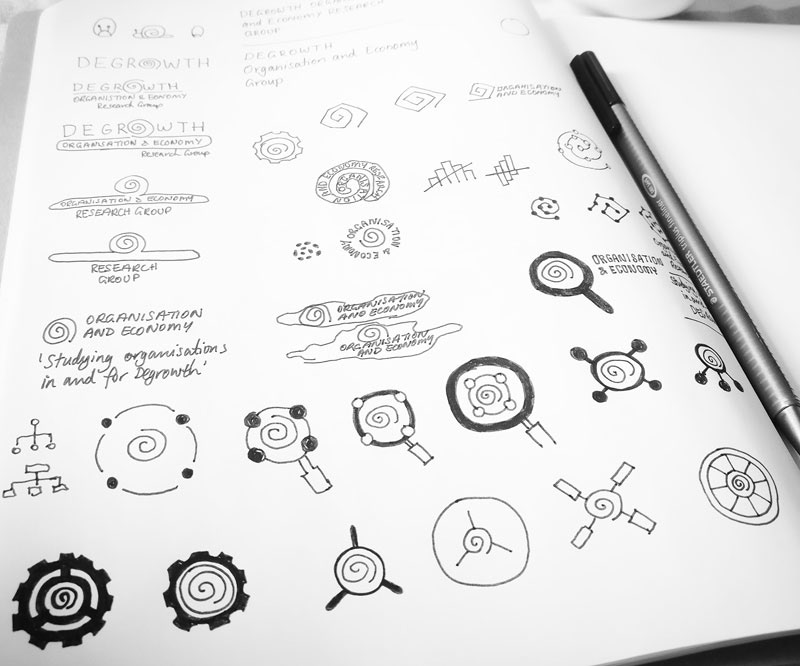 DEGROWTH
and Economy RESEARCH
GROUP
DEGROWTH
Organisation and Economy
Group
DEGROWTH
DEGROWTH
ORGANISTION & ECONOMY
Research Group
DEGROWTH
ORGANISATION & ECONOMY
Research Group
ORGANISATION & ECONOMY
RESEARCH GROUP
RESEARCH
GROUP
ORGANISATION
AND ECONOMY
'Studying organisations
in and for Degrowth'
ORGANISATION
AND ECONOMY
AND ECONOMY RESEARCH
ORGANISATION
ORGANISATION
& ECONOMY
ORGANISATION
AND ECONOMY
ORGANISATION
AND ECONOMY
ORGANISATION
& ECONOMY
STAEDTLER triplus fineliner